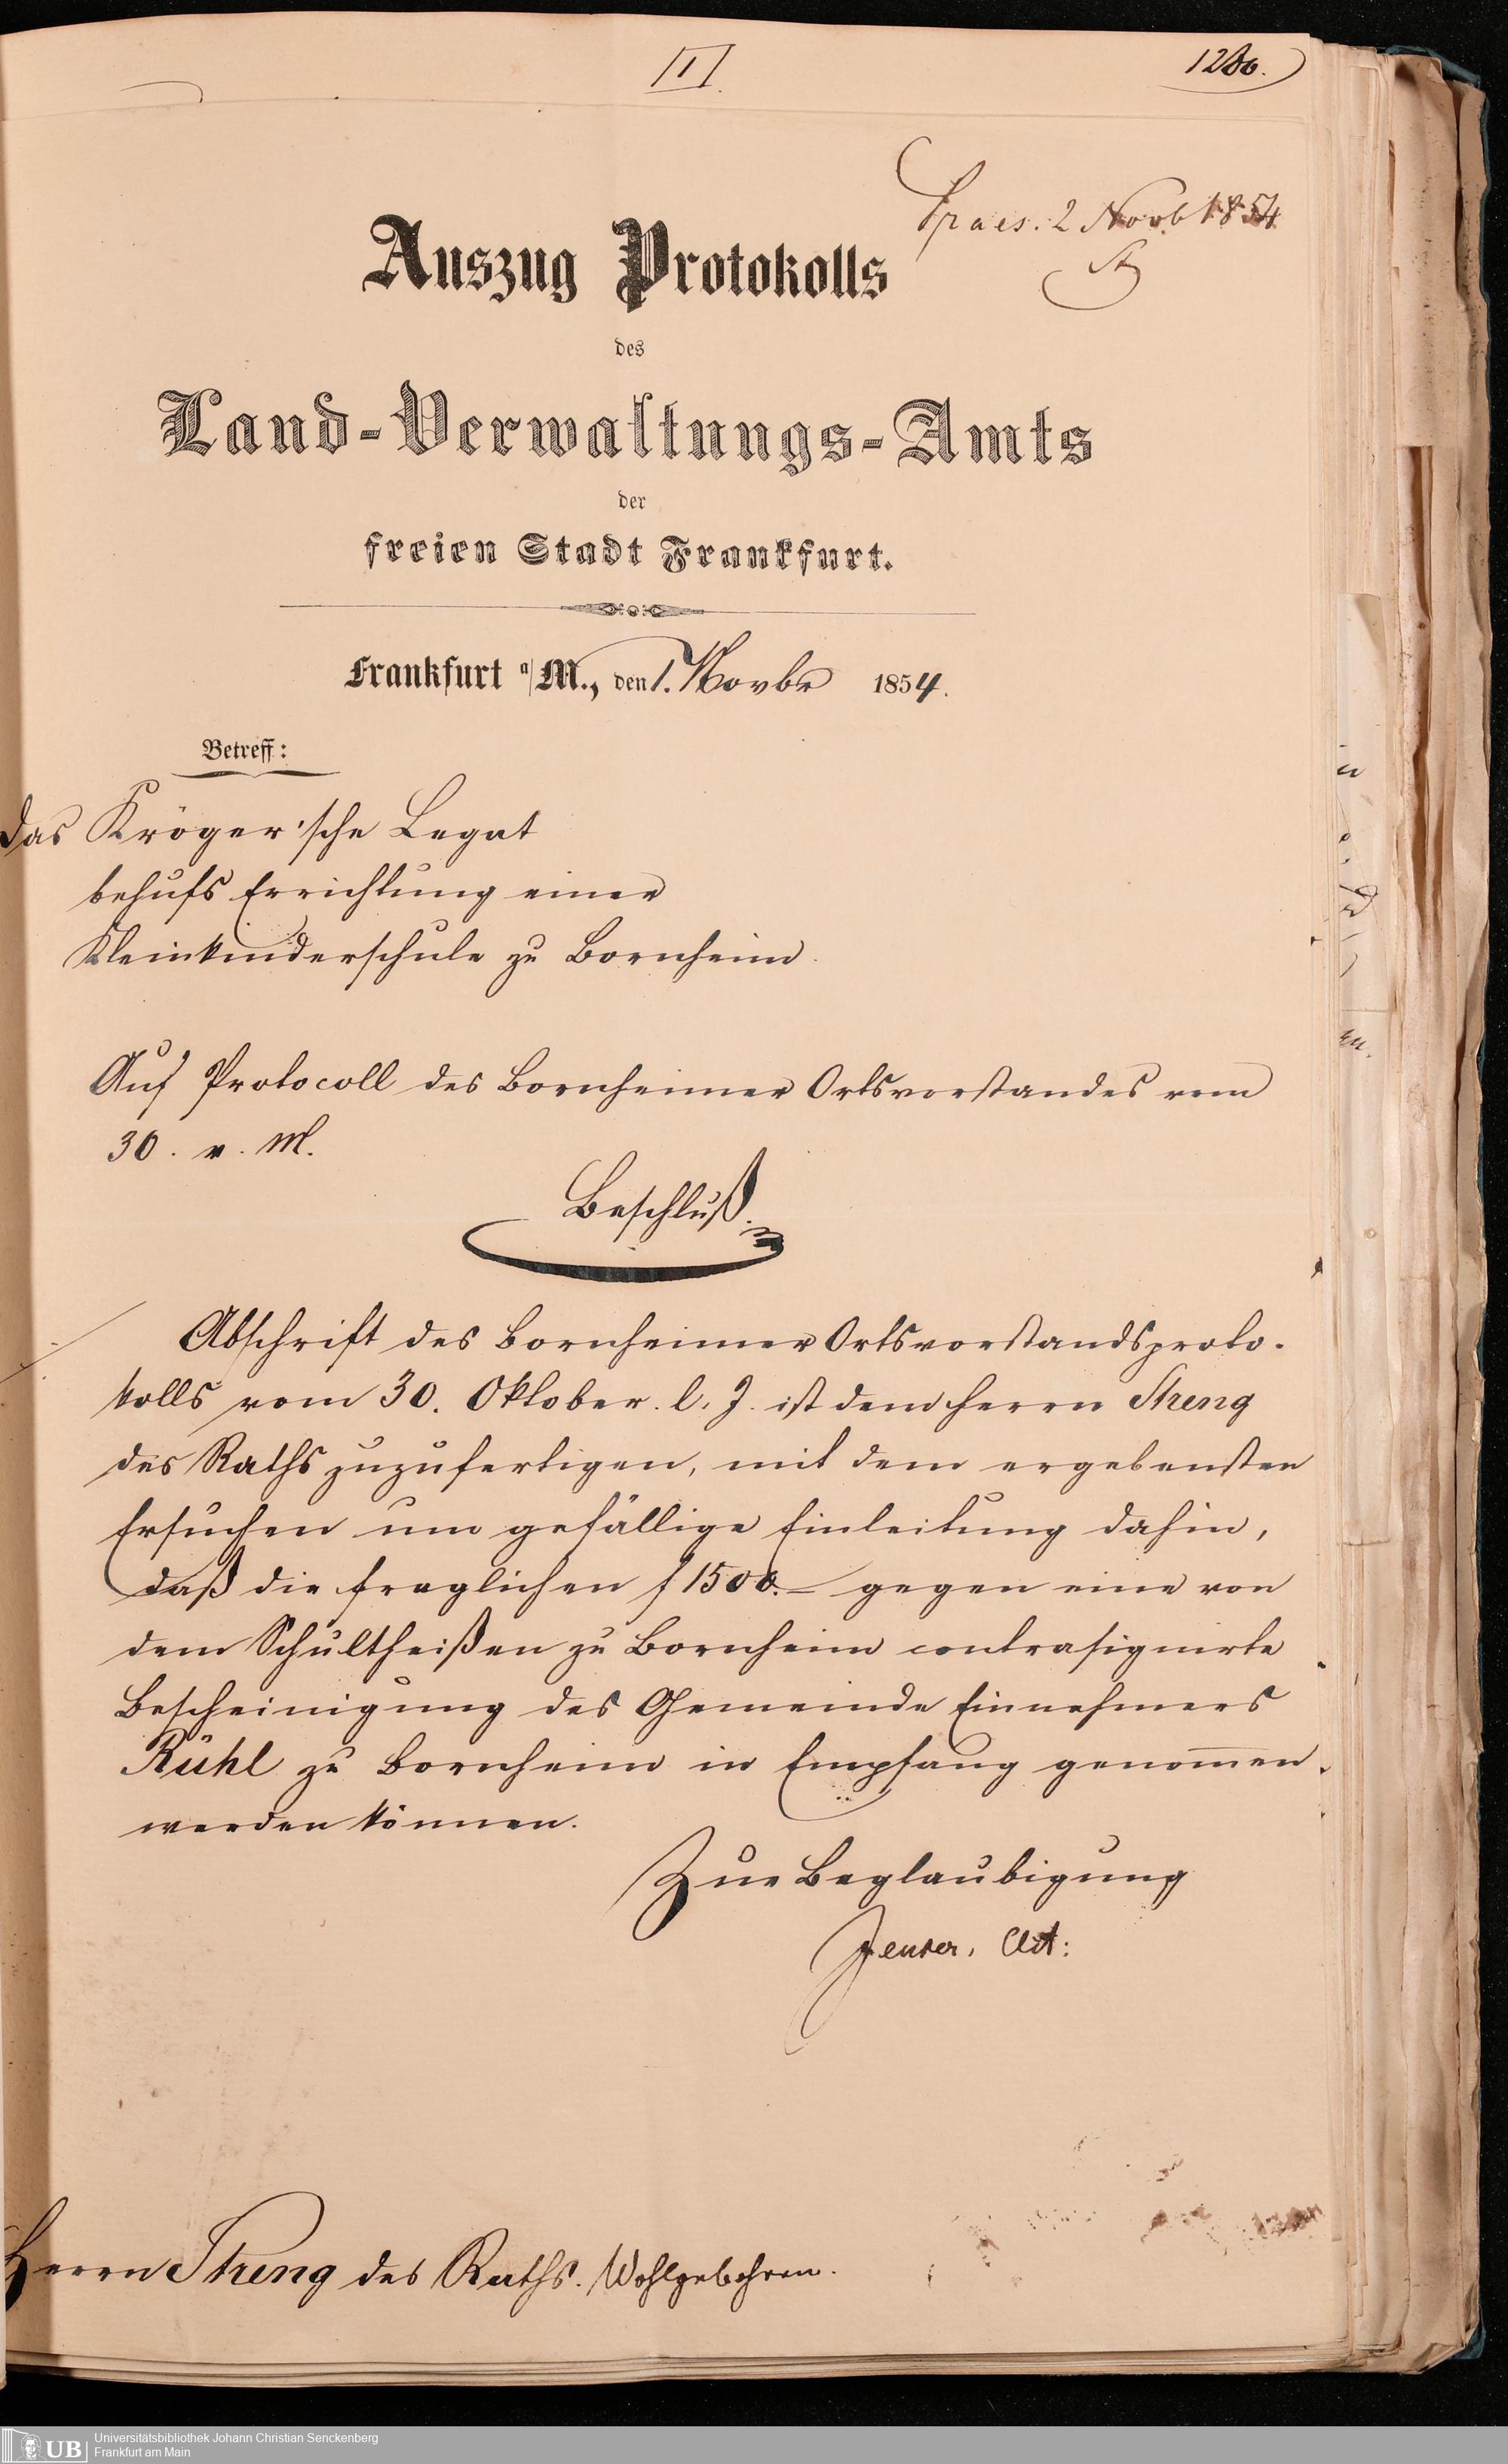 I
Praes: 2 Novb 1854
St
Auszug Protokolls
des
Land-Verwaltungs-Amts
der
freien Stadt Frankfurt.
Frankfurt a/M., den 1. Novbr 1854.
Betreff:
das Kröger'sche Legat
behufs Errichtung einer
Kleinkinderschule zu Bornheim.
Auf Protocoll des Bornheimer Ortsvorstandes vom
30. v. M.
Beschluß.
Abschrift des Bornheimer Ortsvorstandsproto-
kolls vom 30. Oktober. l. J. ist dem Herrn Streng
des Raths zuzufertigen, mit dem ergebensten
Ersuchen um gefällige Einleitung dahin,
daß die fraglichen f 1500.— gegen eine von
dem Schultheißen zu Bornheim contrasignirte
Bescheinigung des Gemeinde Einnehmers
Rühl zu Bornheim in Empfang genomen
werden können.
Zur Beglaubigung
Act:
Herrn Streng des Raths. Wohlgebohren.
UB
Universitätsbibliothek Johann Christian Senckenberg
Frankfurt am Main